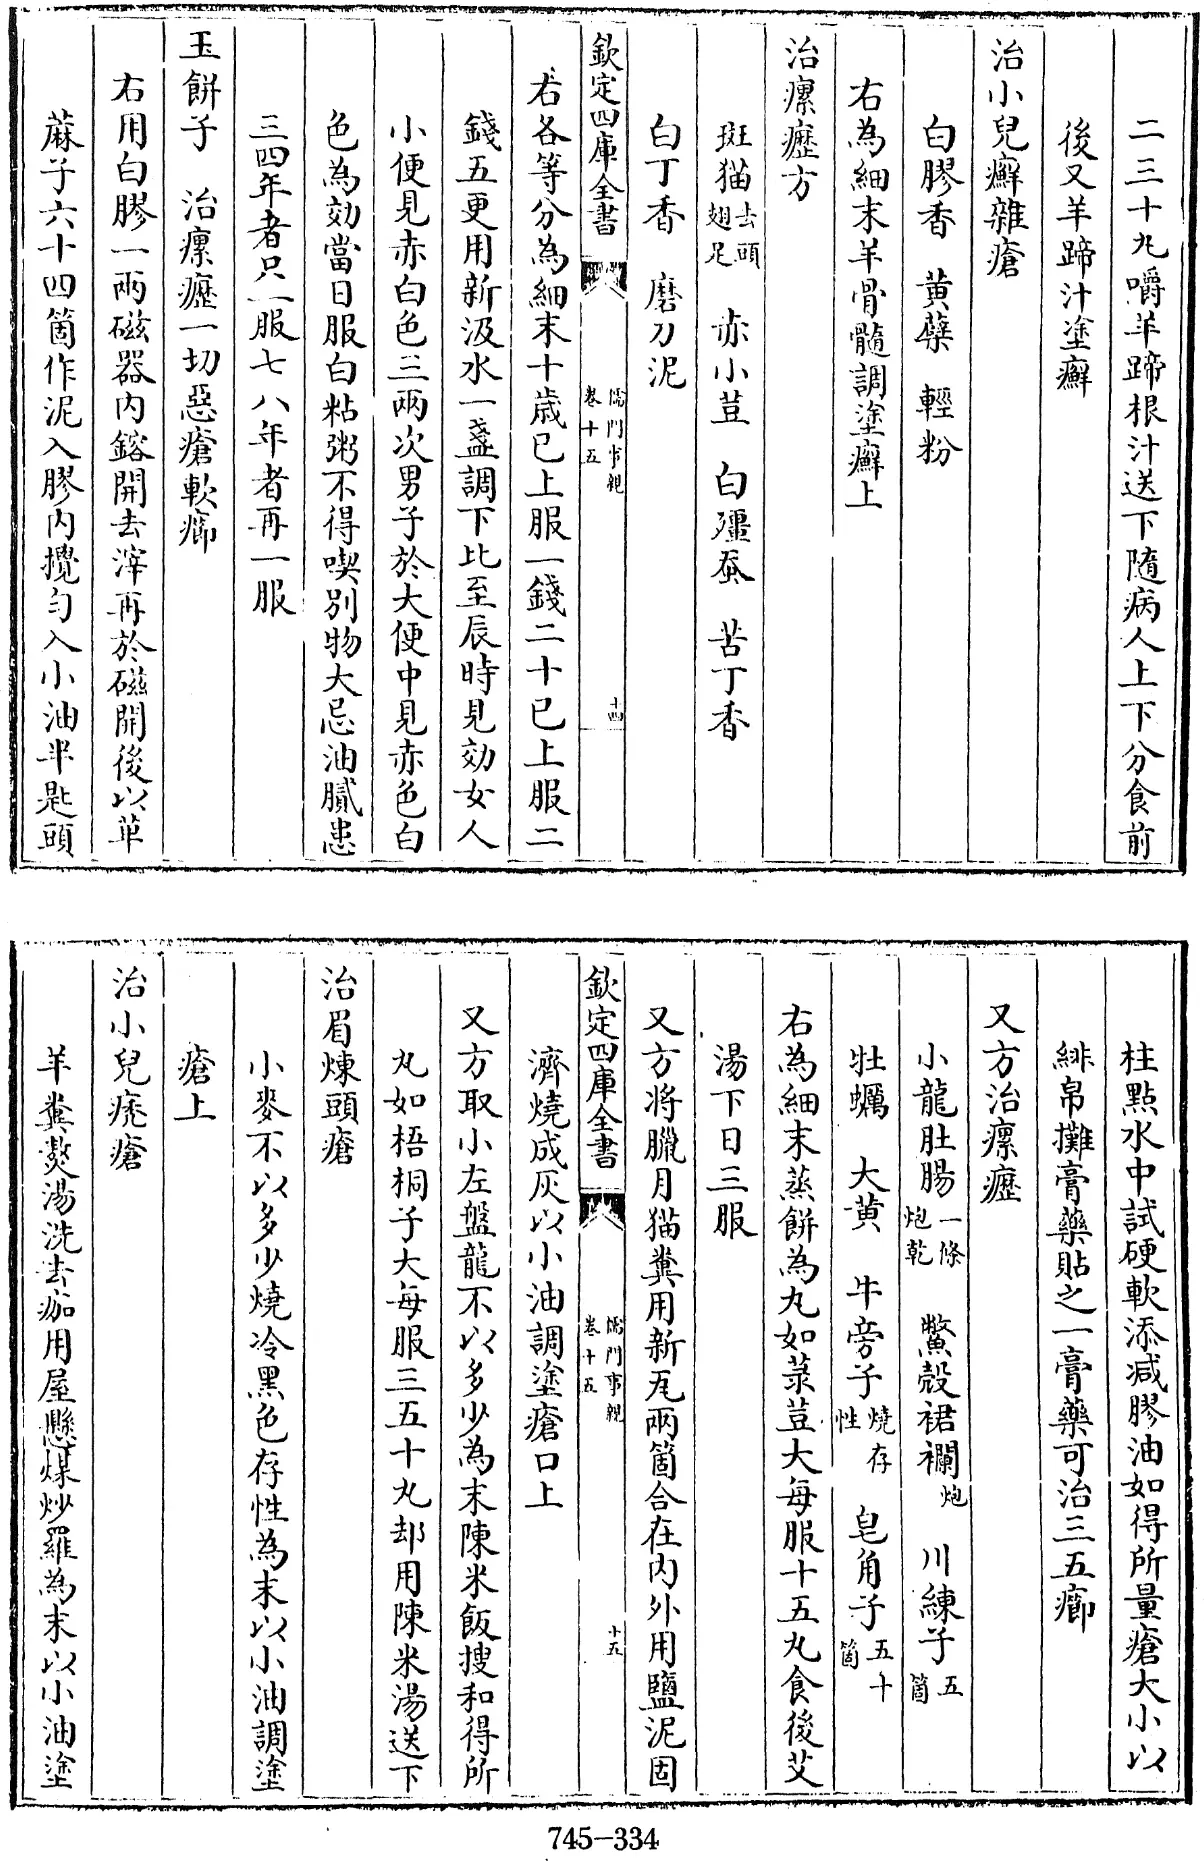 二三十丸嚼羊蹄根汁送下隨病人上下分食前
後又羊蹄汁塗癬
治小兒癬雜瘡
白膠香 黄蘗 輕粉
右為細末羊骨髓調塗癬上
治瘰癧方
斑猫去頭翅足 赤小荳 白殭蚕 苦丁香
白丁香 磨刀泥
欽定四庫全書 儒門事親卷十五 十四
右各等分為細末十歳已上服一錢二十已上服二
錢五更用新汲水一盞調下比至辰時見効女人
小便見赤白色三兩次男子於大便中見赤色白
色為効當日服白粘粥不得喫别物大忌油膩患
三四年者只一服七八年者再一服
玉餅子 治瘰癧一切惡瘡軟癤
右用白膠一兩磁器内鎔開去滓再於磁開後以萆
蔴子六十四箇作泥入膠内攪匀入小油半匙頭
柱㸃水中試硬軟添减膠油如得所量瘡大小以
緋帛攤膏藥貼之一膏藥可治三五癤
又方治瘰癧
小龍肚腸一條炮乾 鱉殻裙襴炮 川練子五箇
牡蠣 大黄 牛旁子燒存性 皂角子五十箇
右為細末蒸餅為丸如菉荳大每服十五丸食後艾
湯下日三服
又方將臘月猫糞用新瓦兩箇合在内外用鹽泥固
欽定四庫全書 儒門事親卷十五 十五
濟燒成灰以小油調塗瘡口上
又方取小左盤龍不以多少為末陳米飯搜和得所
丸如梧桐子大每服三五十丸却用陳米湯送下
治眉煉頭瘡
小麥不以多少燒冷黑色存性為末以小油調塗
瘡上
治小兒疣瘡
羊糞熬湯洗去痂用屋懸煤炒羅為末以小油塗
745-334